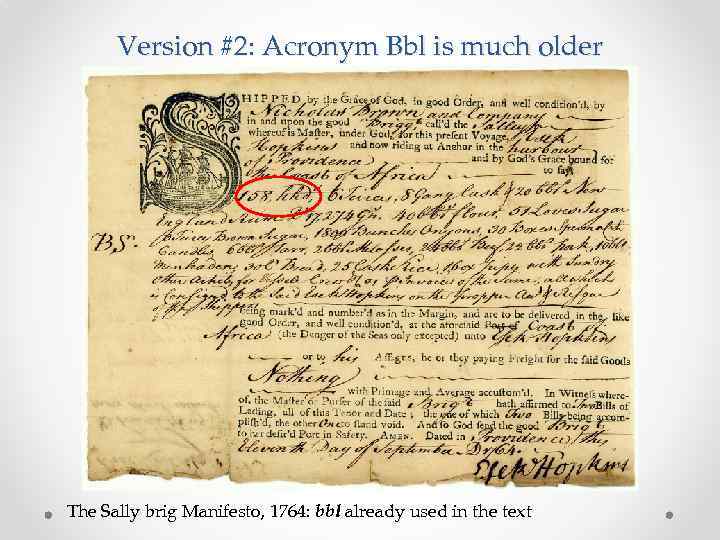 Version #2: Acronym Bbl is much older
SHIPPED by the Grace of God, in good Order, and well condition'd, by
Nicholas Brown and Company
in and upon the good Brigt call'd the Sally
whereof is Master, under God, for this present Voyage Esek
Hopkins and now riding at Anchor in the harbour
of Providence and by God's Grace bound for
the Coast of Africa to say
158 hhd, 6 Tierces, 8 Gang Cask & 20 bbl New
England Rum Qt 17,274 Gn. 40 bbl flour, 51 Loves Sugar
B,,Sn. 2 Tierces Brown Sugar, 1800 Bunches Onyons, 30 Boxes
Candles 6 bbl Tarr, 2 bbl Molasses, 2 bbl Beef 2 bbl pork, 10 bbl
Menhaden, 30 Bread, 25 Casks Rice, 1 box with Sundry
other for as Invoices of the Same, all which
is Consigned to the Said Esek Hopkins on the Proper & Resque
of Shippers
being mark'd and number'd as in the Margin, and are to be delivered in the like
good Order, and well condition'd, at the aforesaid Port of Coast of
Africa (the Danger of the Seas only excepted) unto Esek Hopkins
or to his Assigns, he or they paying Freight for the said Goods
Nothing
with Primage and Average accustom'd. In Witness where-
of, the Master or Purser of the said Brigt hath affirmed to Two Bills of
Lading, all of this Tenor and Date; the one of which Two Bills being accom-
plish'd, the other One to stand void. And so God send the good Brigt
to her desir'd Port in Safety. Amen. Dated in Providence this
Eleventh Day of September D 1764
Esek Hopkins
The Sally brig Manifesto, 1764: bbl already used in the text